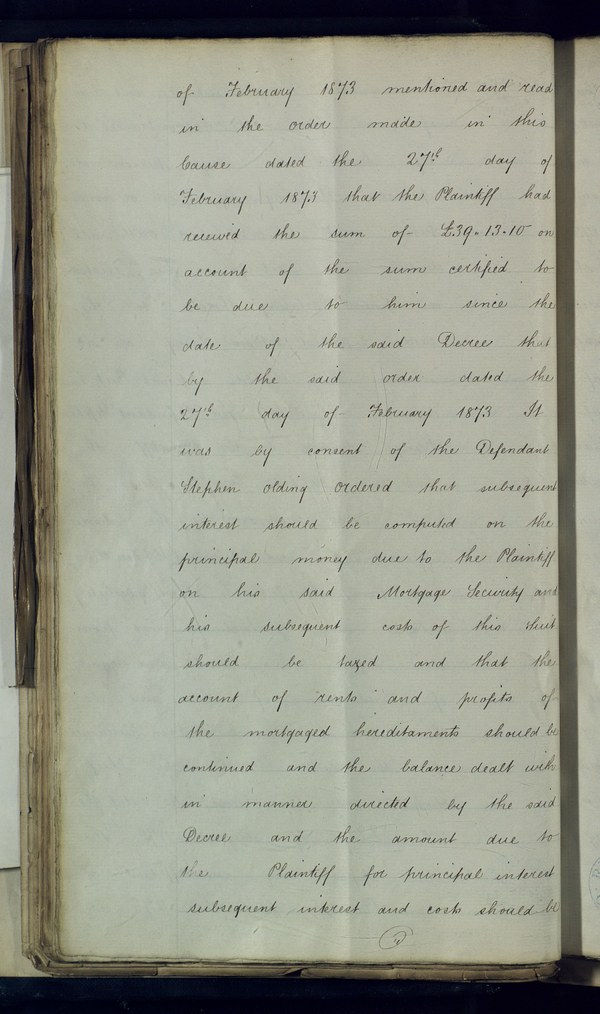 of February 1873 mentioned and read
in the order made in this
Cause dated the 27th day of
February 1873 that the Plaintiff had
received the sum of £39.13.10 on
account of the sum certified to
be due to him since the
date of the said Decree that
by the said order dated the
27th day of February 1873 It
was by consent of the Defendant
Stephen Olding Ordered that subsequent
interest should be computed on the
principal money due to the Plaintiff
on his said Mortgage Security and
his subsequent costs of this Suit
should be taxed and that the
account of rents and profits of
the mortgaged hereditaments should be
continued and the balance dealt with
in manner directed by the said
Decree and the amount due to
the Plaintiff for principal interest
subsequent interest and costs should be